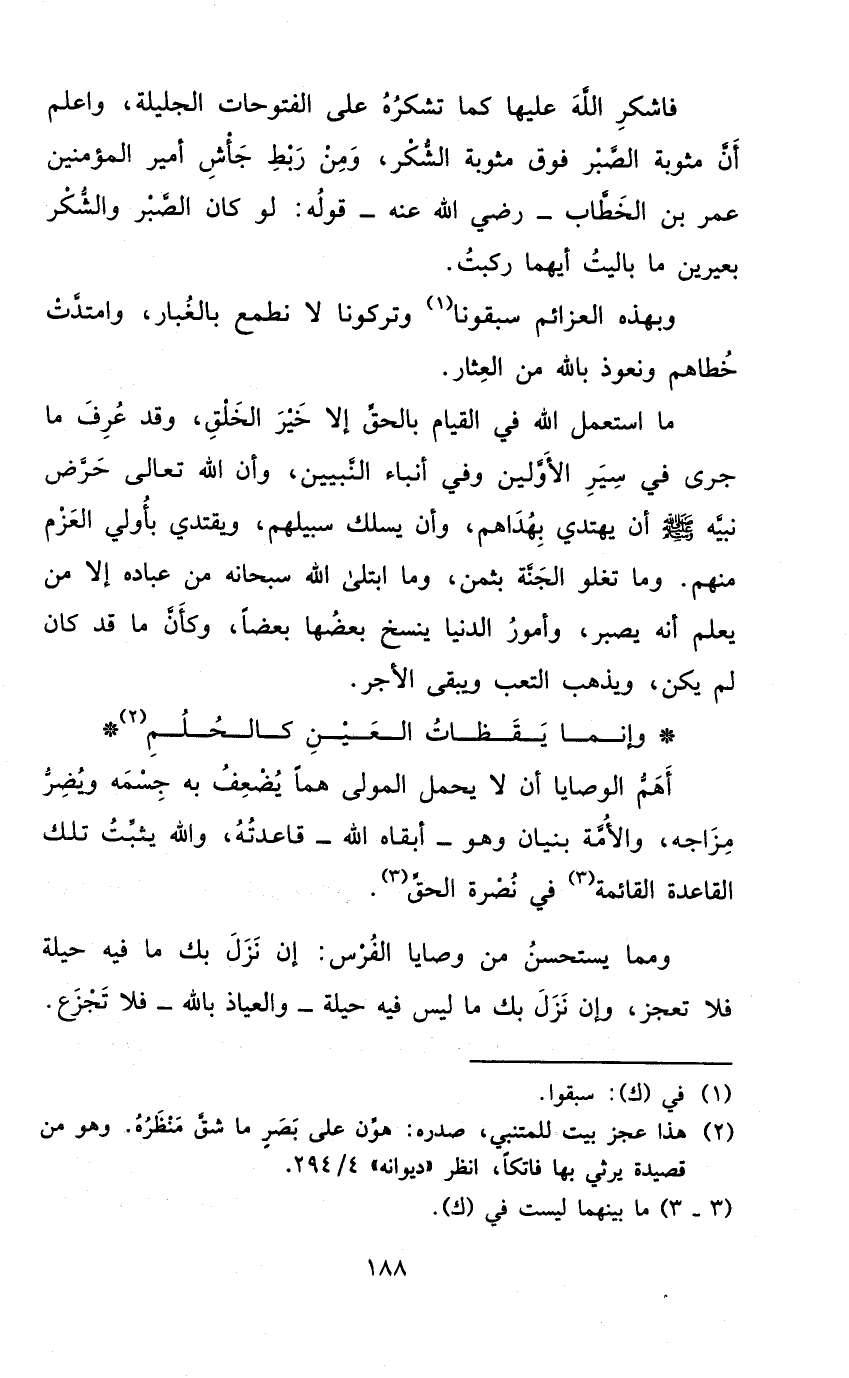 فاشكرِ اللَّهَ عليها كما تشكرُهُ على الفتوحات الجليلة، واعلم
أَنَّ مثوبة الصَّبْر فوق مثوبة الشُّكْر، وَمِنْ رَبْطِ جَأْشِ أمير المؤمنين
عمر بن الخَطَّاب ـ رضي الله عنه ـ قولُه: لو كان الصَّبْر والشُّكْر
بعيرين ما باليتُ أيهما ركبتُ.
وبهذه العزائم سبقونا(١) وتركونا لا نطمع بالغُبار، وامتدَّتْ
خُطاهم ونعوذ بالله من العِثار.
ما استعمل الله في القيام بالحقِّ إلا خَيْرَ الخَلْقِ، وقد عُرِفَ ما
جرى في سِيَرِ الأَوَّلين وفي أنباء النَّبيين، وأن الله تعالى حَرَّض
نبيَّه ﷺ أن يهتدي بِهُدَاهم، وأن يسلك سبيلهم، ويقتدي بأُولي العَزْم
منهم. وما تغلو الجَنَّة بثمن، وما ابتلىٰ الله سبحانه من عباده إلا من
يعلم أنه يصبر، وأمورُ الدنيا ينسخ بعضُها بعضاً، وكأَنَّ ما قد كان
لم يكن، ويذهب التعب ويبقى الأجر.
* وإنـمـا يَـقَـظـاتُ الـعَـيْـنِ كـالـحُـلُـمِ(٢)*
أَهَمُّ الوصايا أن لا يحمل المولى هماً يُضْعِفُ به جِسْمَه ويُضِرُّ
مِزَاجه، والأُمَّة بنيان وهو ـ أبقاه الله ـ قاعدتُهُ، والله يثبِّتُ تلك
القاعدة القائمة(٣) في نُصْرة الحقِّ(٣).
ومما يستحسنُ من وصايا الفُرْس: إن نَزَلَ بك ما فيه حيلة
فلا تعجز، وإن نَزَلَ بك ما ليس فيه حيلة ـ والعياذ بالله ـ فلا تَجْزَع.
(١) في (ك): سبقوا.
(٢) هذا عجز بيت للمتنبي، صدره: هوِّن على بَصَرٍ ما شقَّ مَنْظَرُهُ. وهو من
قصيدة يرثي بها فاتكاً، انظر «ديوانه» ٢٩٤/٤.
(٣ ـ ٣) ما بينهما ليست في (ك).
١٨٨